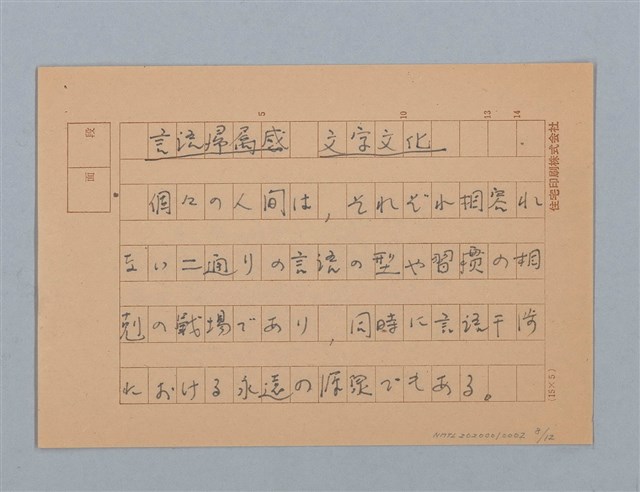 言語帰属感 文字文化
個々の人間は,それぞれ相容れ
ない二通りの言語の型や習慣の相
剋の戦場であり,同時に言語干渉
における永遠の源泉でもある。
段
面
5
10
13
14
住宅印刷株式会社
(15×5)
NMTL20200010002 3/12